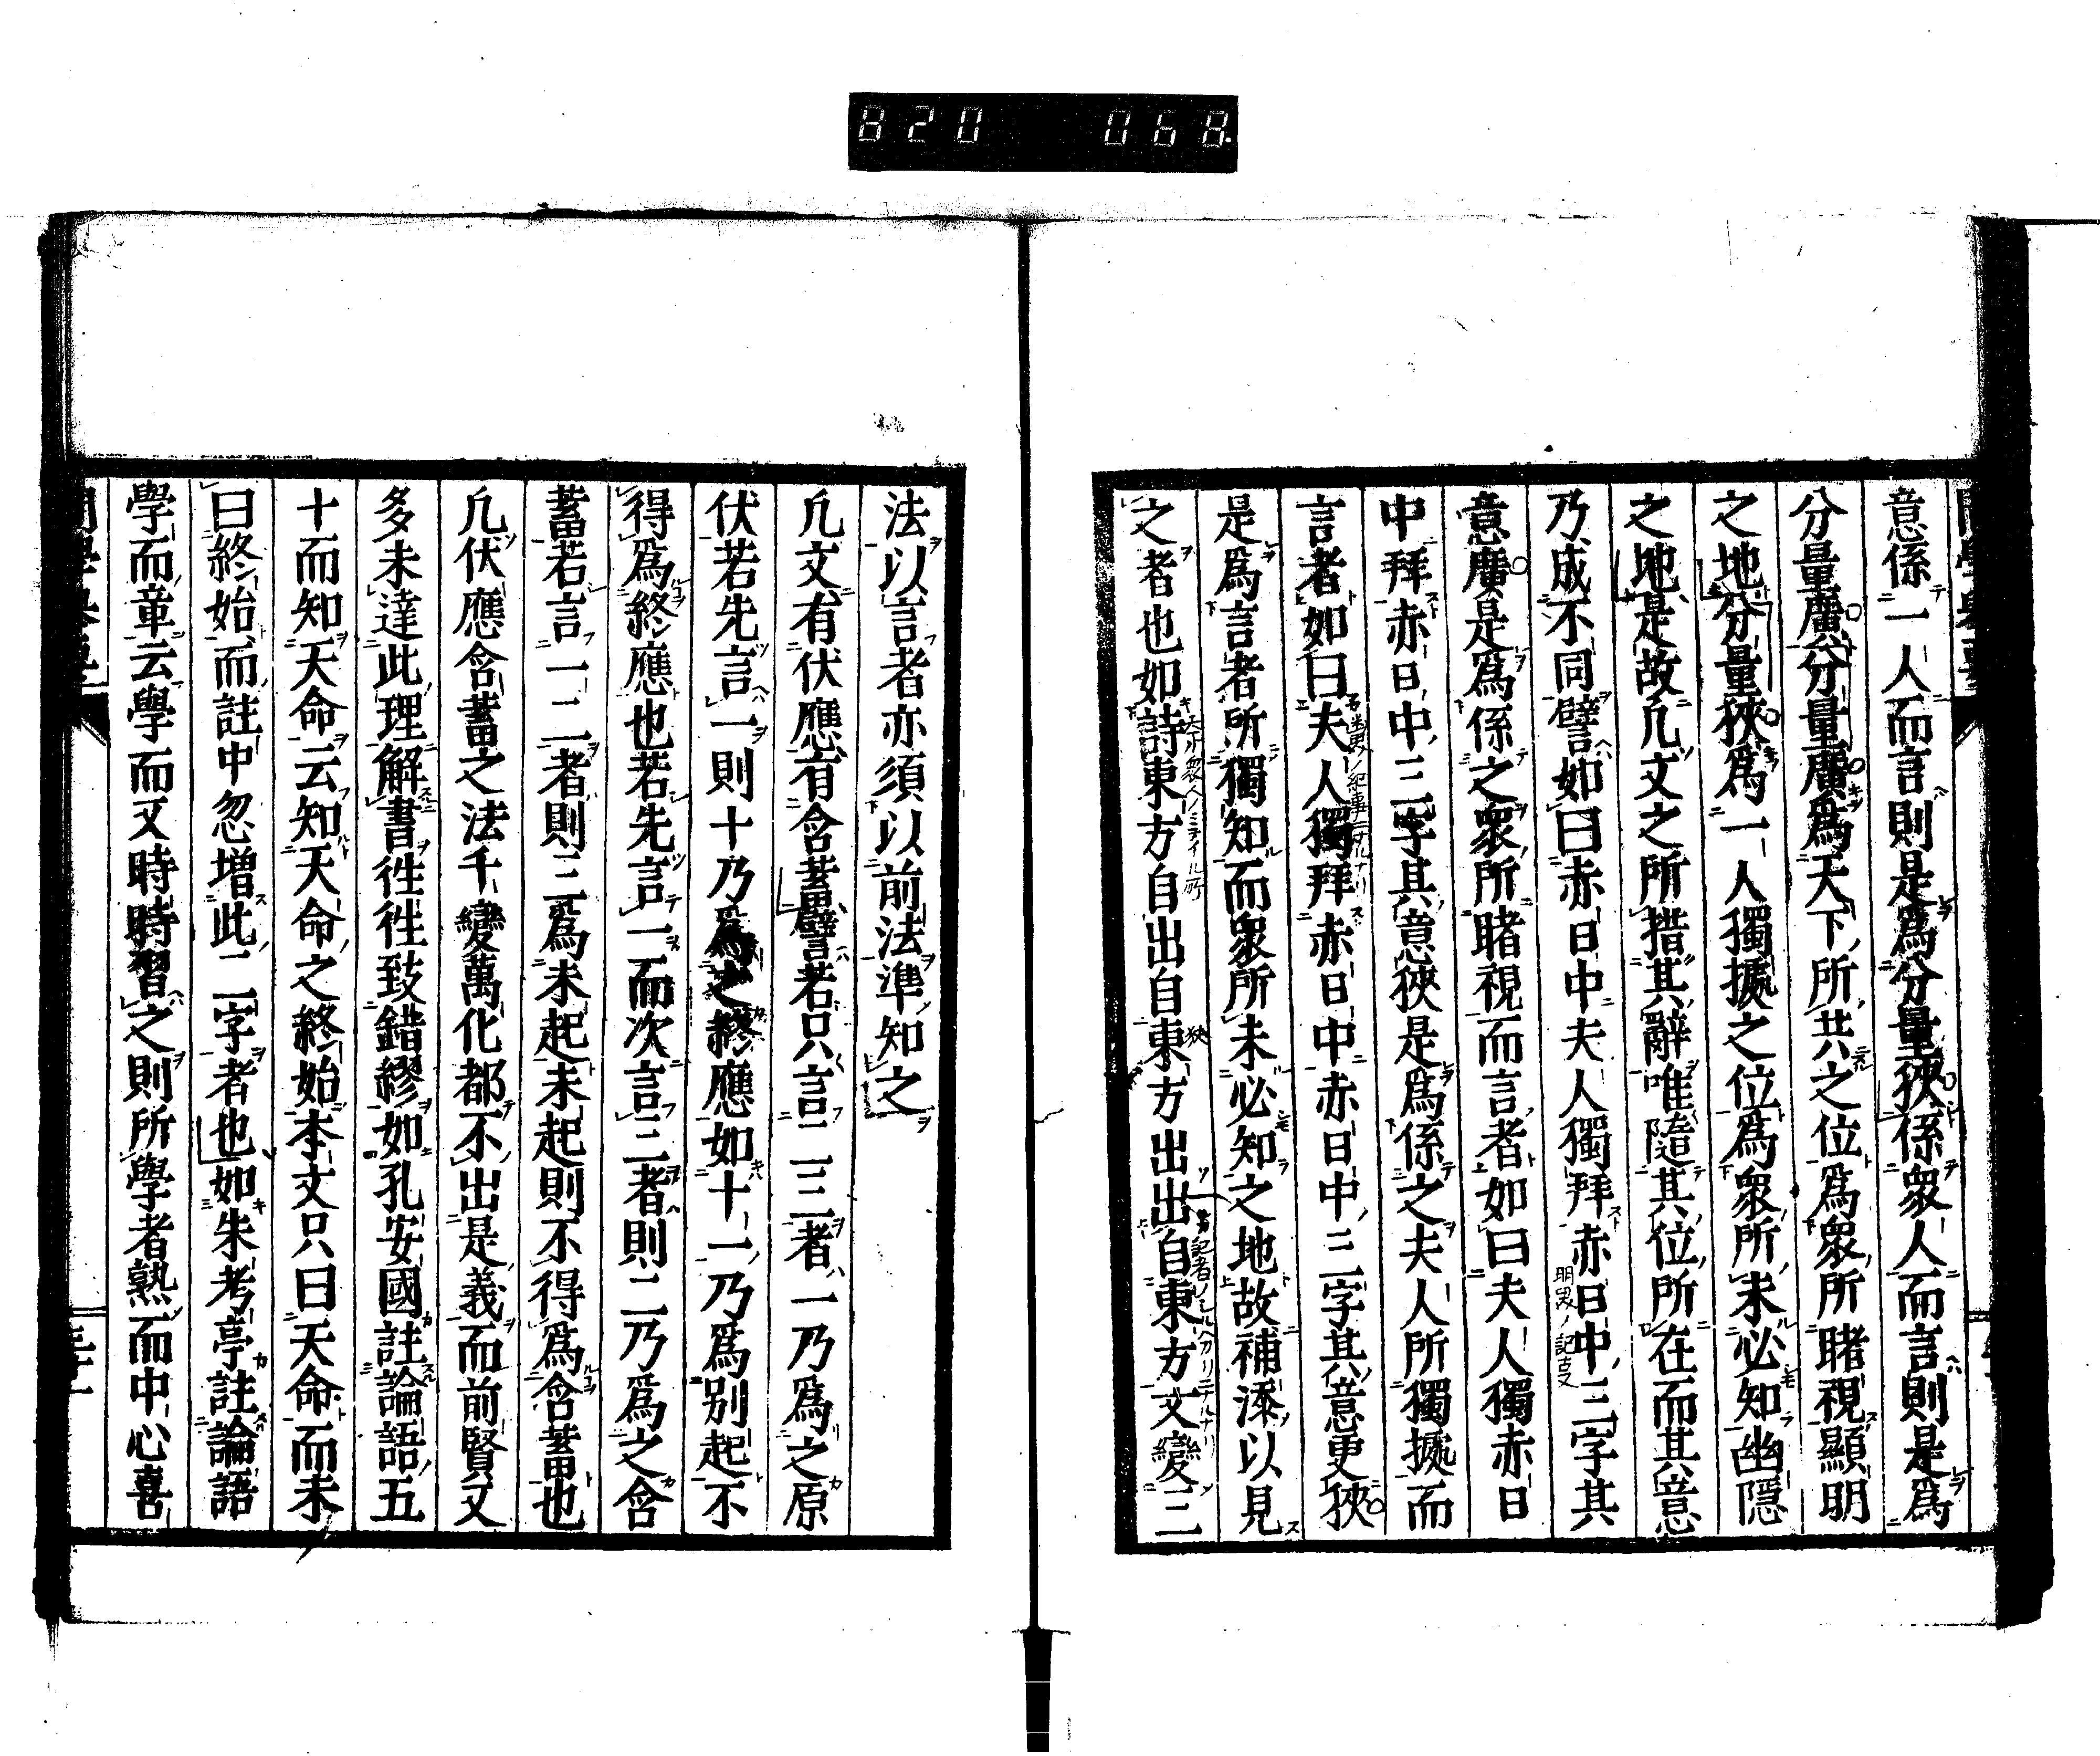 820 068
意係一人而言則是爲分量狹係衆人而言則是爲
分量廣分量廣爲天下所共之位爲衆所睹視顯明
之地分量狹爲一人獨據之位爲衆所未必知幽隱
之地是故凡文之所措其辭唯隨其位所在而其意
乃成不同譬如曰赤日中夫人獨拜赤日中三字其
意廣是爲係之衆所睹視而言者如曰夫人獨赤日
中拜赤日中三字其意狹是爲係之夫人所獨據而
言者如曰夫人獨拜赤日中赤日中三字其意更狹
是爲言者所獨知而衆所未必知之地故補添以見
之者也如詩東方自出自東方出出自東方文變三
法以言者亦須以前法準知之
凡文有伏應有含蓄譬若只言二三者一乃爲之原
伏若先言一則十乃爲之終應如十一乃爲別起不
得爲終應也若先言一而次言三者則二乃爲之含
蓄若言一二者則三爲未起未起則不得爲含蓄也
凡伏應含蓄之法千變萬化都不出是義而前賢又
多未達此理解書徃徃致錯繆如孔安國註論語五
十而知天命云知天命之終始本文只曰天命而未
曰終始而註中忽增此二字者也如朱考亭註論語
學而章云學而又時時習之則所學者熟而中心喜